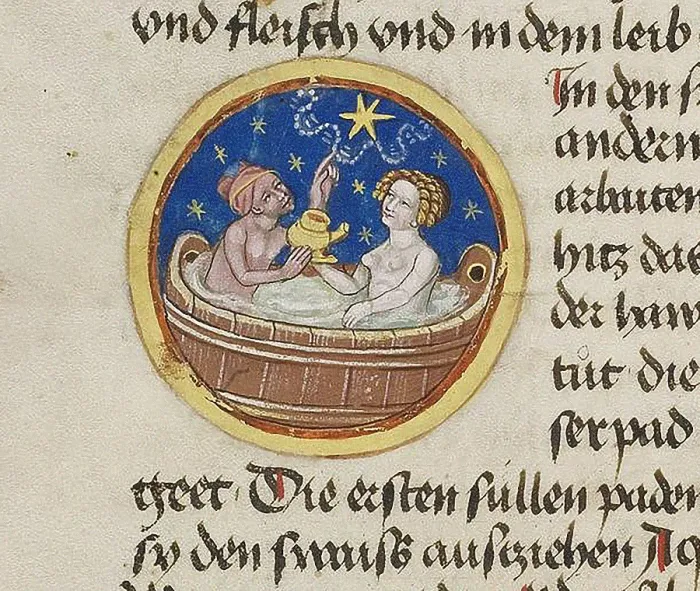 vnd fleisch vnd in dem leib
In den s
andern
arbaiten
hitz das
der haw
tut die
serpad
geet · Die ersten süllen paden
sy den swaiss aufziehen